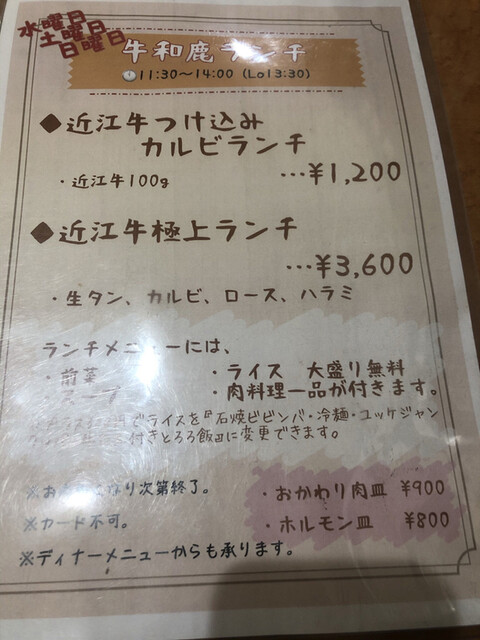 水曜日
土曜日
日曜日
牛和鹿ランチ
11:30～14:00 (Lo13:30)
◆近江牛つけ込み
カルビランチ
・近江牛100g
…¥1,200
◆近江牛極上ランチ
…¥3,600
・生タン、カルビ、ロース、ハラミ
ランチメニューには、
・前菜
・ライス 大盛り無料
スープ
・肉料理一品が付きます。
でライスを『石焼ビビンバ・冷麺・ユッケジャン
付きとろろ飯』に変更できます。
なり次第終了。
・おかわり肉皿 ¥900
※カード不可。
・ホルモン皿 ¥800
※ディナーメニューからも承ります。